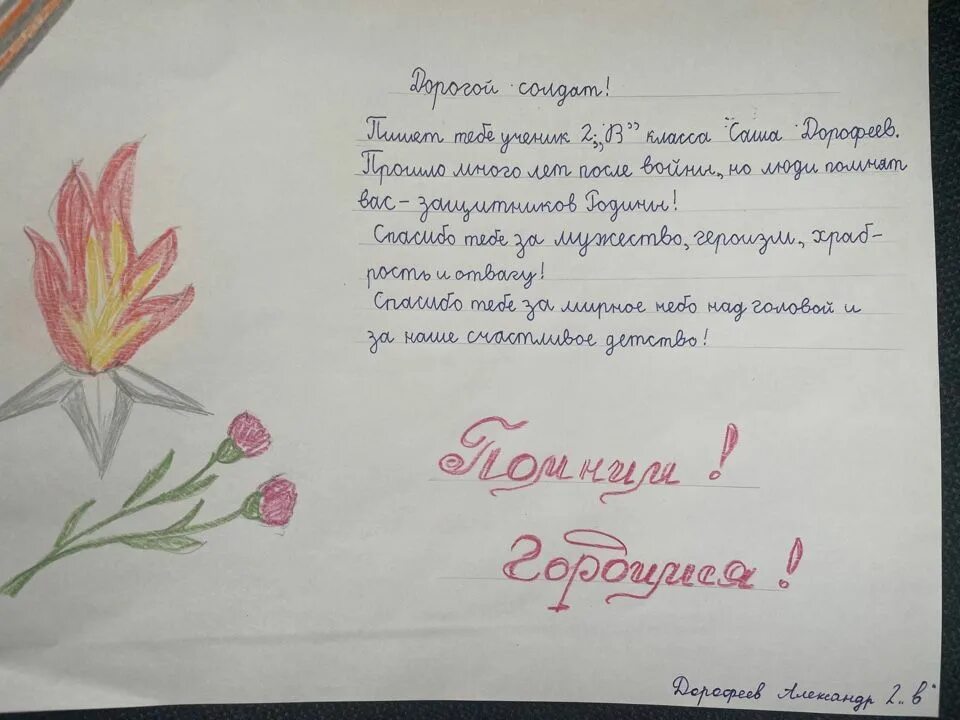 Дорогой солдат!
Пишет тебе ученик 2 „В” класса Саша Дорофеев.
Прошло много лет после войны, но люди помнят
вас - защитников Родины!
Спасибо тебе за мужество, героизм, храб-
рость и отвагу!
Спасибо тебе за мирное небо над головой и
за наше счастливое детство!
Помним!
Гордимся!
Дорофеев Александр 2 „в“